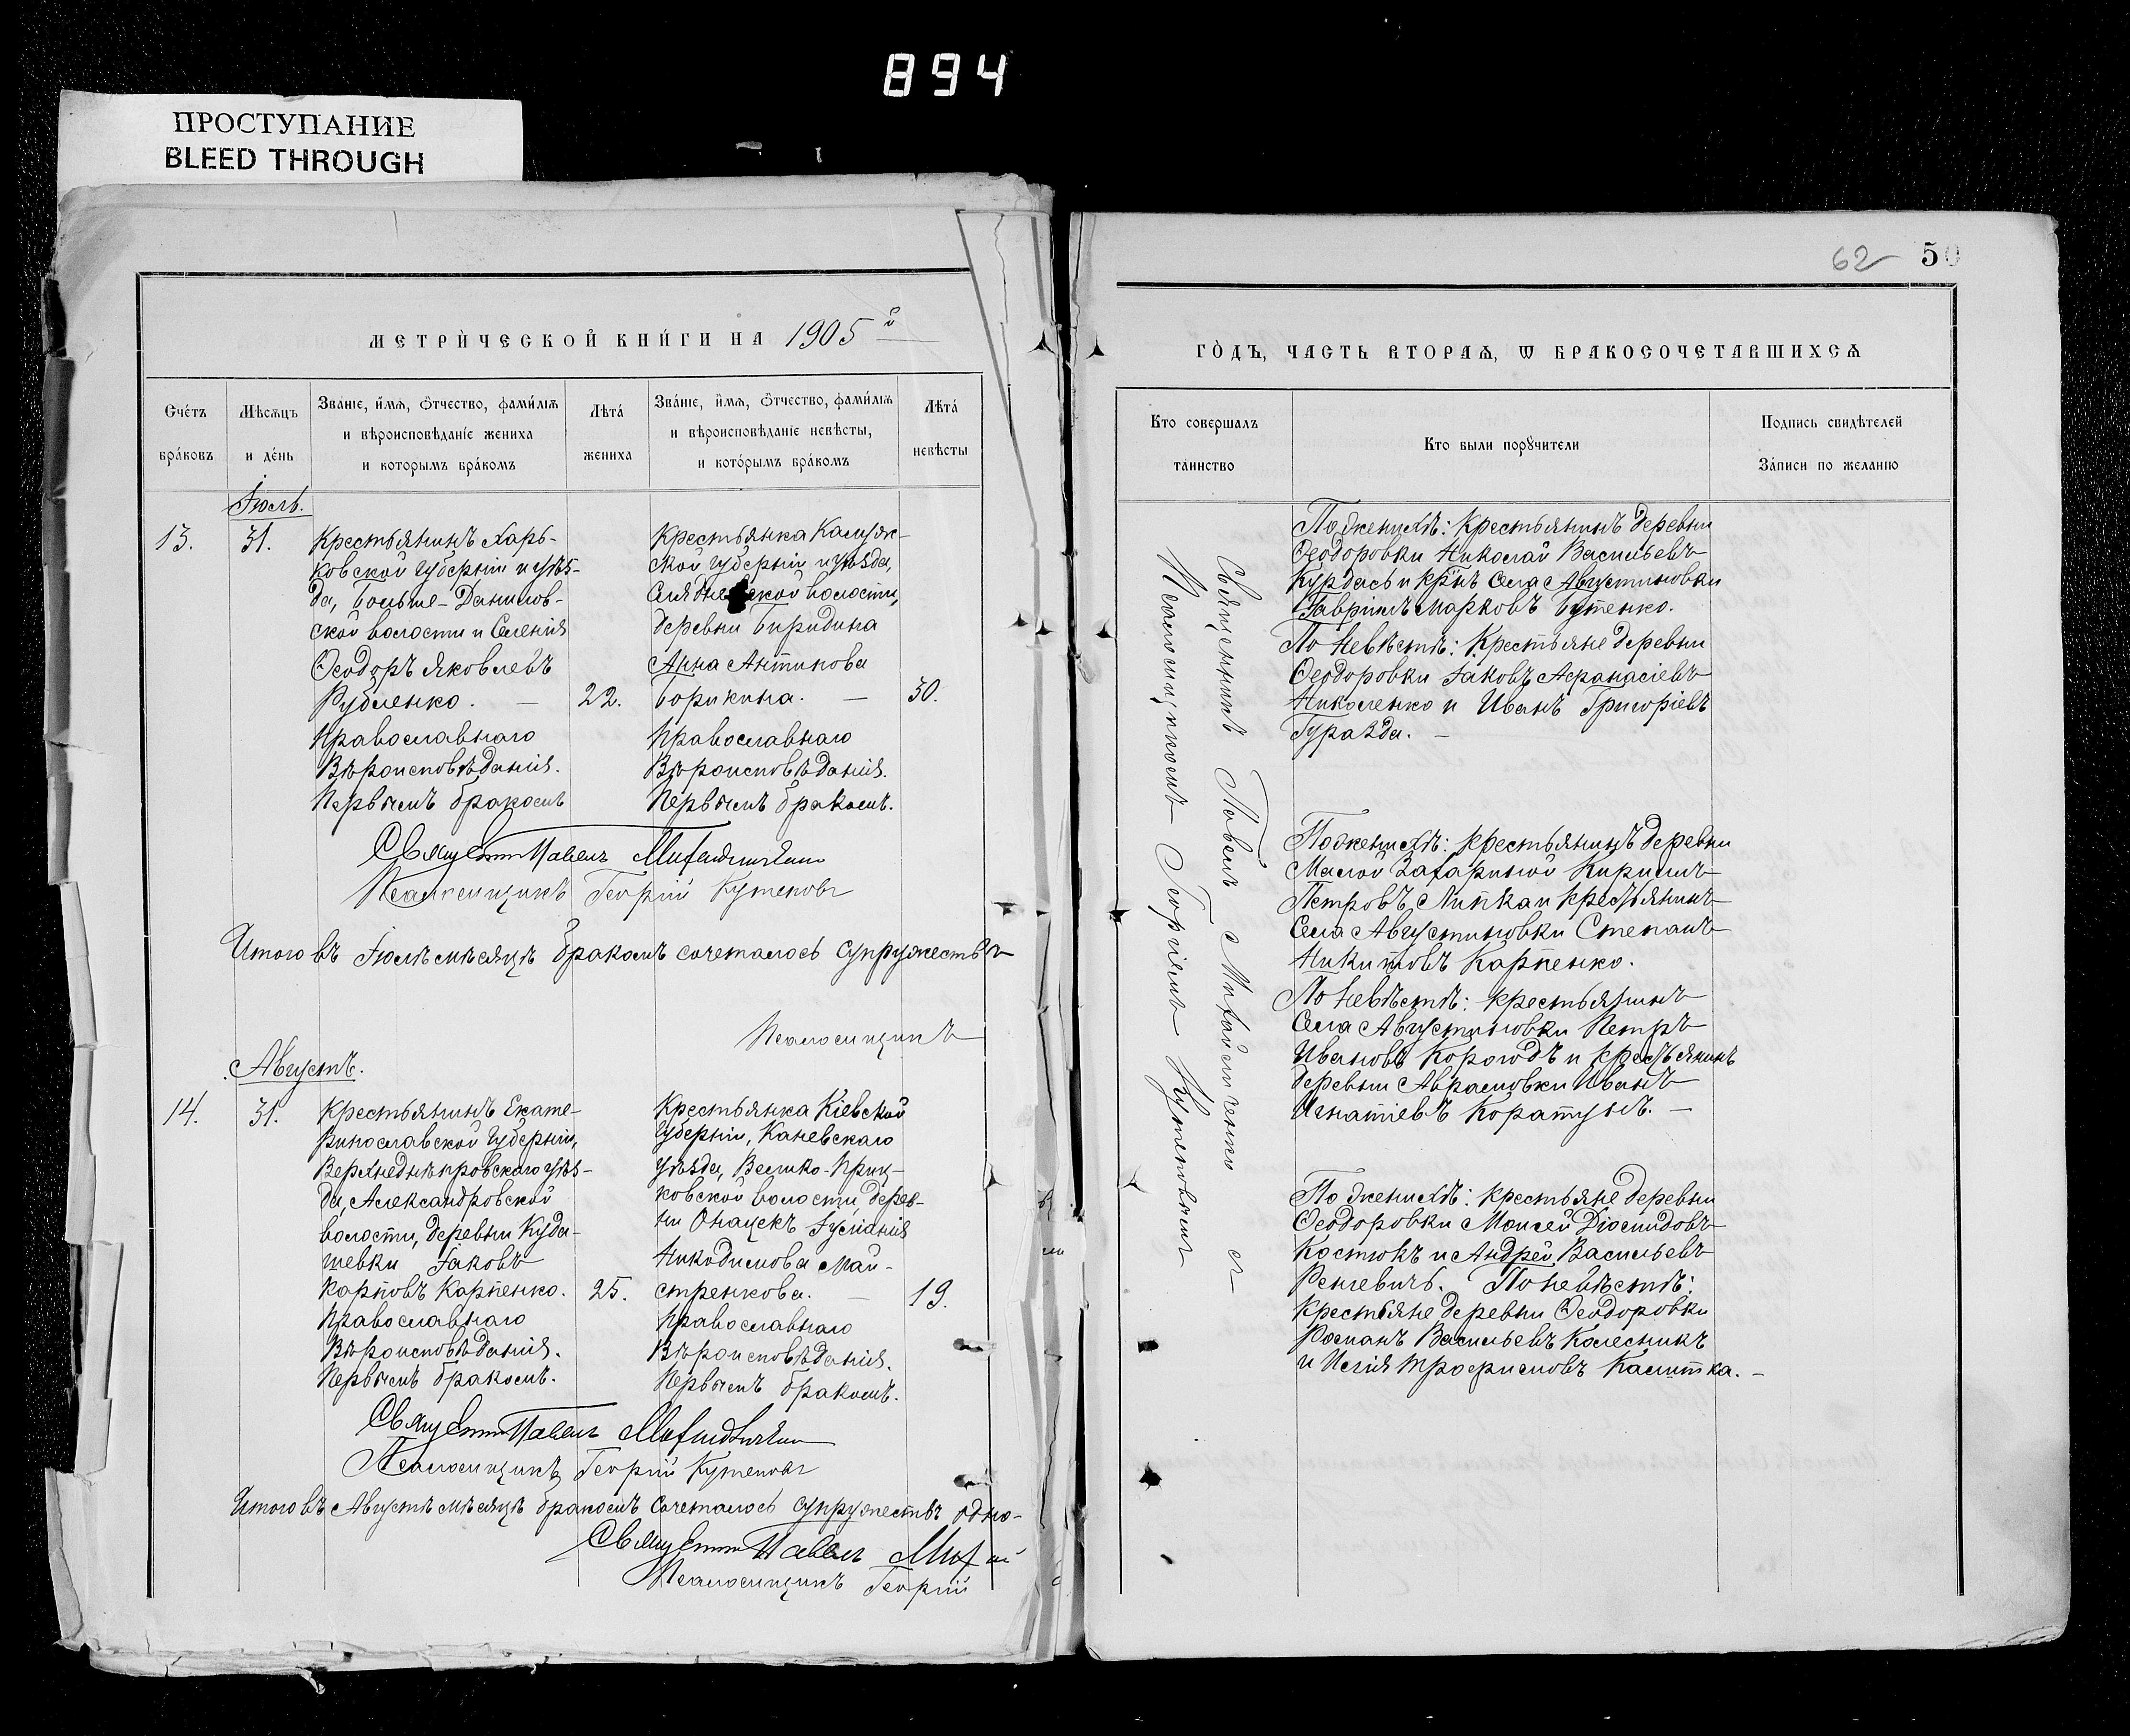 894
ПРОСТУПАНИЕ
BLEED THROUGH
МЕТРИЧЕСКОЙ КНИГИ НА 1905й
Счетъ браковъ
Мѣсяцъ и день
Званіе, имя, отчество, фамилія
и вѣроисповѣданіе жениха
и которымъ бракомъ
Лѣта жениха
Званіе, имя, отчество, фамилія
и вѣроисповѣданіе невѣсты,
и которымъ бракомъ
Лѣта невѣсты
Іюль.
13.
31.
Крестьянинъ Харь-
ковской губерніи и уѣз-
да, Больше-Данилов-
ской волости и селенія
Ѳеодоръ Яковлевъ
Рубленко. — 22.
православнаго
вѣроисповѣданія.
первымъ бракомъ
Крестьянка Калуж-
ской губерніи и уѣзда,
волости,
деревни Биридина
Анна Антипова
Борикина. — 30.
православнаго
вѣроисповѣданія.
первымъ бракомъ.
Священникъ Павелъ
Псаломщикъ Георгій Кутеповъ
Итого въ Іюлѣ мѣсяцѣ бракомъ сочеталось супружествъ
Псаломщикъ
Августъ.
14.
31.
Крестьянинъ Екате-
ринославской губерніи,
Верхнеднѣпровскаго уѣз-
да, Александровской
волости, деревни Куда-
шевки Іаковъ
Карповъ Карпенко. 25.
православнаго
вѣроисповѣданія.
первымъ бракомъ.
Крестьянка Кіевской
губерніи, Каневскаго
уѣзда, Велико-Приц-
ковской волости, дерев-
ни Онацекъ Іуліанія
Никодимова Май-
стренкова. — 19.
православнаго
вѣроисповѣданія.
первымъ бракомъ.
Священникъ Павелъ
Псаломщикъ Георгій Кутеповъ
Итого въ Августѣ мѣсяцѣ бракомъ сочеталось супружествъ одно-
Священникъ Павелъ Мих
Псаломщикъ Георгій
62 50
ГОДЪ, ЧАСТЬ ВТОРАЯ, Ѡ БРАКОСОЧЕТАВШИХСЯ
Кто совершалъ таинство
Кто были поручители
Подпись свидѣтелей
записи по желанію
Священникъ Павелъ Михайличенко съ
Псаломщикомъ Георгіемъ Кутеповымъ
По женихѣ: крестьянинъ деревни
Ѳеодоровки Николай Васильевъ
Курдась и кр̃нъ села Августиновки
Гавріилъ Марковъ Бутенко.
По невѣстѣ: крестьяне деревни
Ѳеодоровки Іаковъ Аѳанасіевъ
Николенко и Иванъ Григоріевъ
Гуразда. —
По женихѣ: крестьянинъ деревни
Малой Захариной Кириллъ
Петровъ Липка и крестьянинъ
села Августиновки Степанъ
Никитовъ Карпенко.
По невѣстѣ: крестьянинъ
села Августиновки Петръ
Ивановъ Короводъ и крестьянинъ
деревни Аврамовки Иванъ
Игнатіевъ Коратунъ. —
По женихѣ: крестьяне деревни
Ѳеодоровки Моисей Діомидовъ
Костюкъ и Андрей Васильевъ
Реневичъ. По невѣстѣ:
крестьяне деревни Ѳеодоровки
Романъ Васильевъ Колесникъ
и Илія Трофимовъ Калитка. —